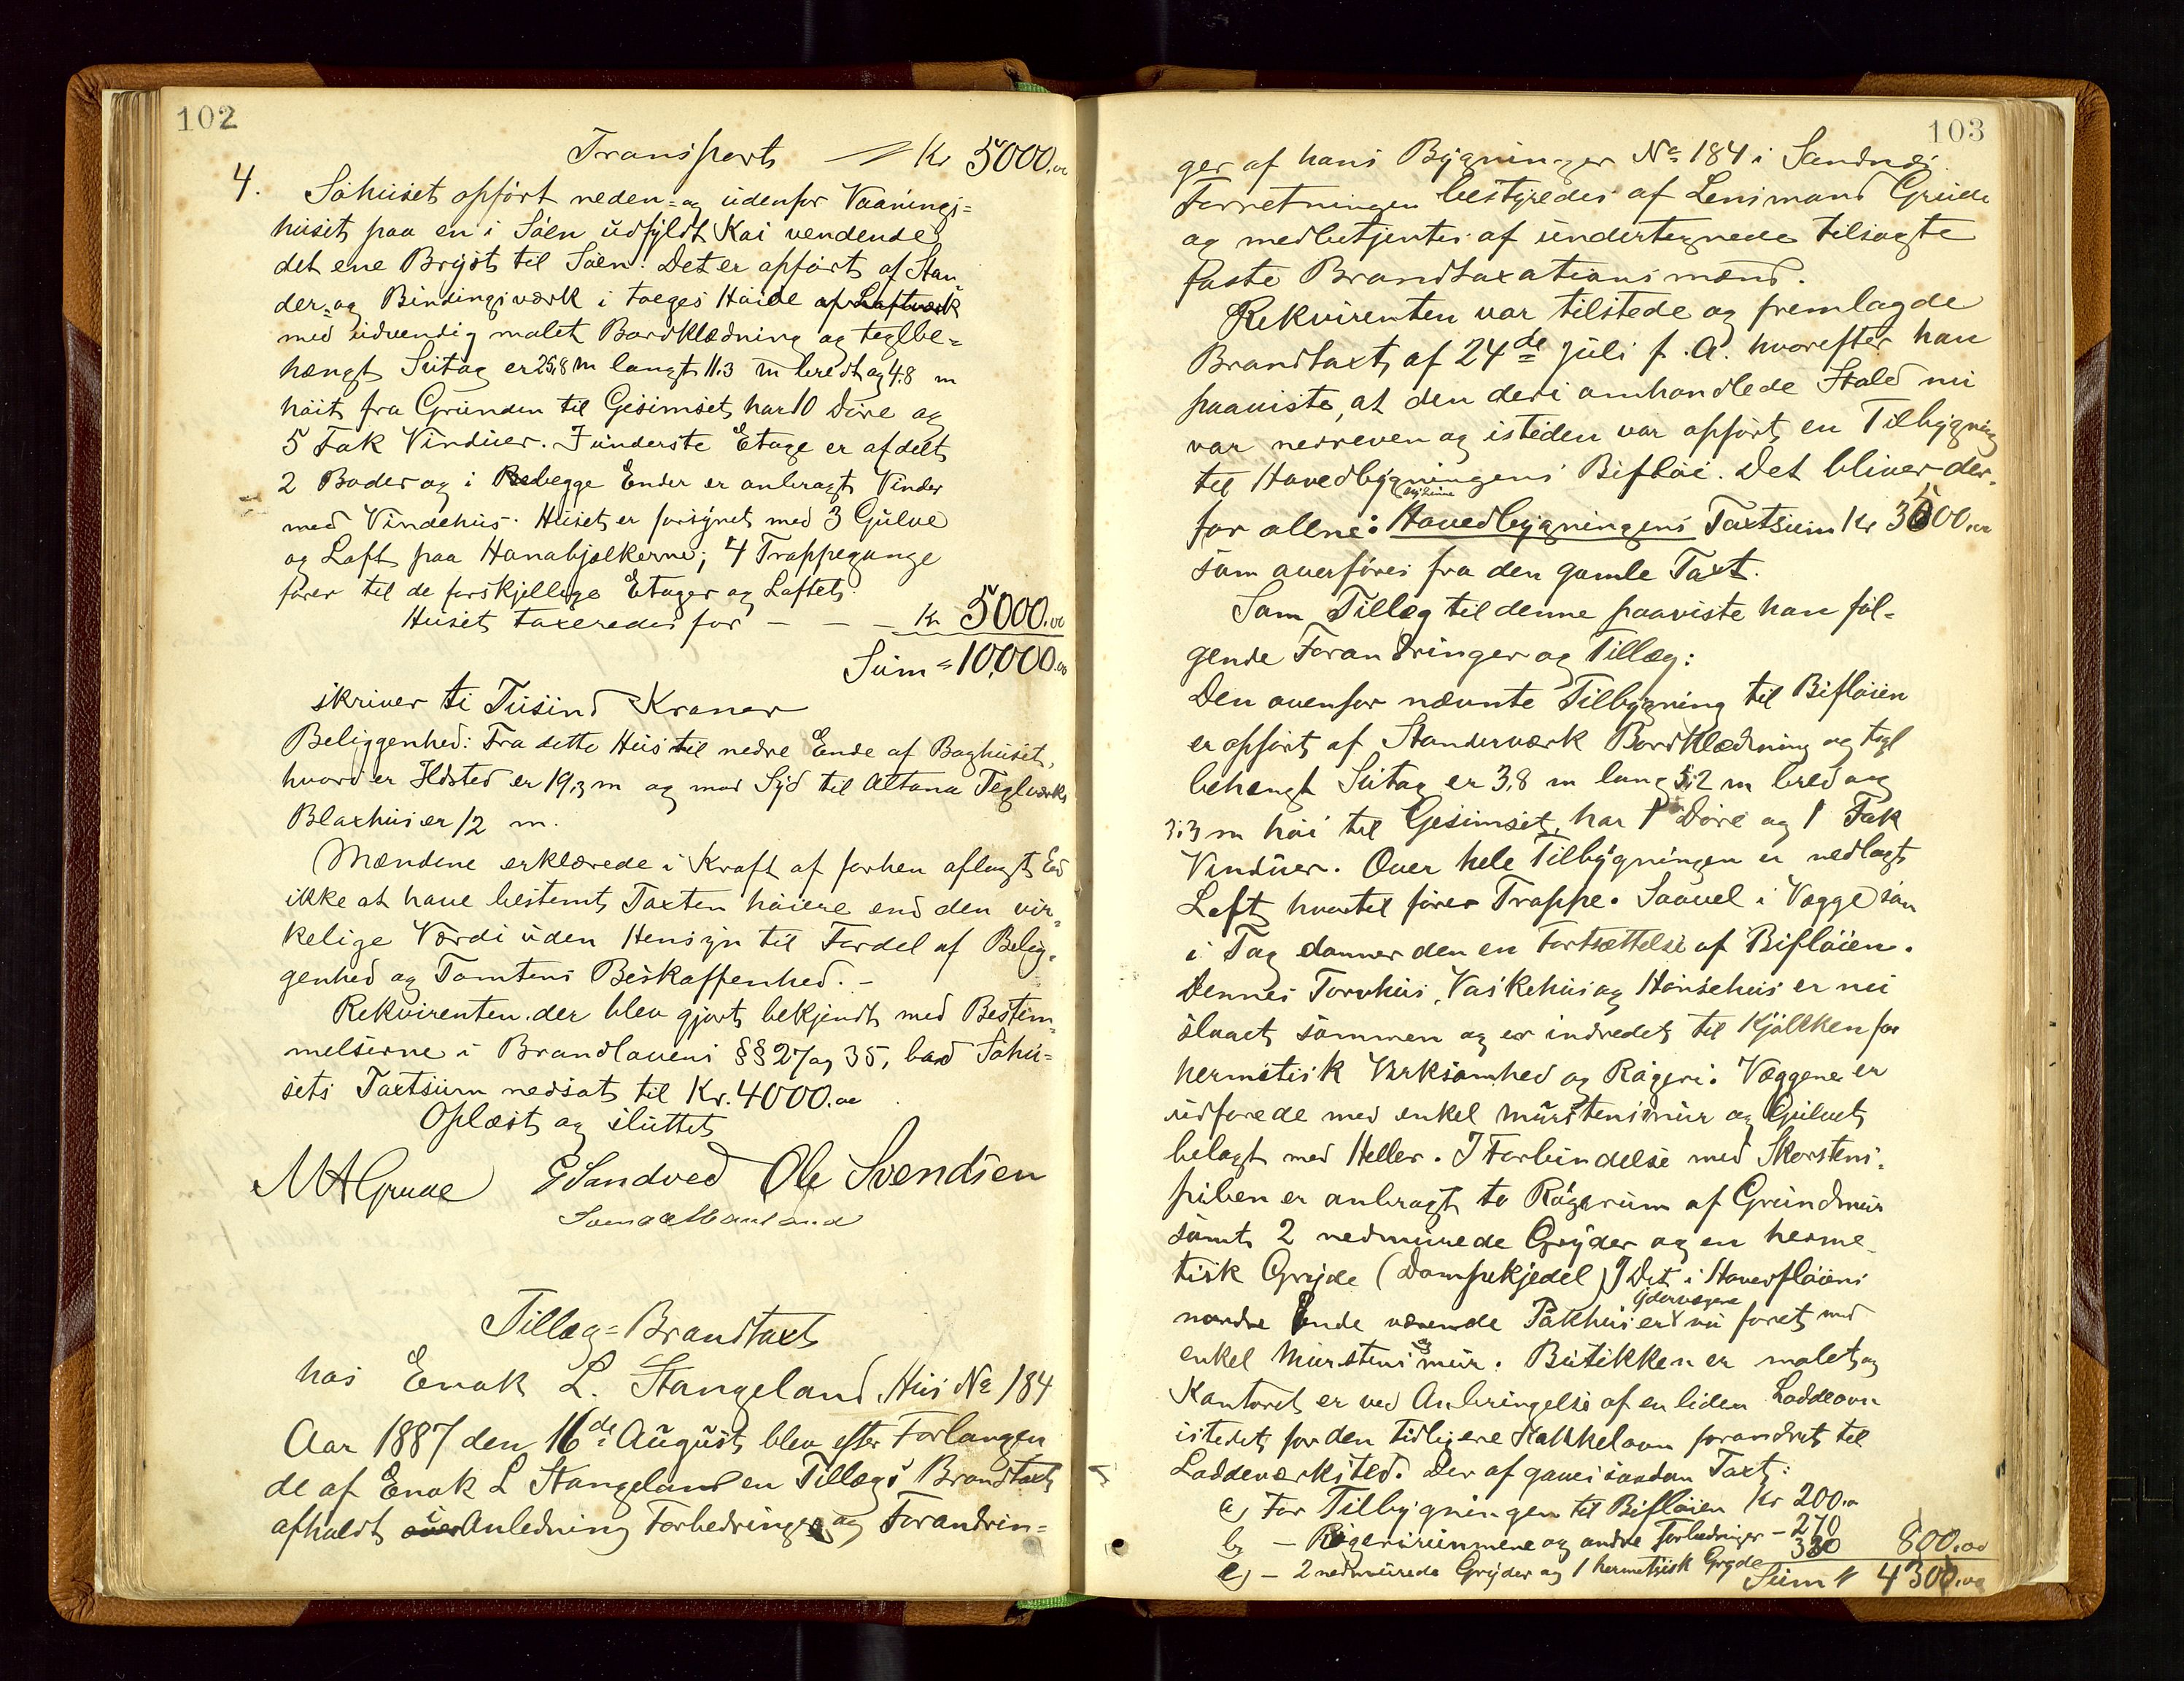 102
Transport — " Kr 5000.00
4. Söhuset opfört neden- og udenfor Vaanings-
huset paa en i Söen udfyldt Kai vendende
det ene Bryst til Söen. Det er opfört af Stan-
der- og Bindingsværk i toeges Höide af Laftværk
med udvendig malet Bordklædning og teglbe-
hængt Sutag er 25,8 m langt 11.3 m bredt og 4.8 m
höit fra Grunden til Gesimset, har 10 Döre og
5 Fak Vinduer. I underste Etage er afdelt
2 Boder og i begge Ender er anbragt Vinder
med Vindehus. Huset er forsynet med 3 Gulve
og Loft paa Hanabjelkerne; 4 Trappegange
förer til de forskjellige Etager og Loftet.
Huset taxeredes for — — — Kr 5000.00
Sum " 10,000.00
skriver ti Tusind Kroner
Beliggenhed: Fra dette Hus til nedre Ende af Baghuset,
hvord er Ildsted er 19,3 m og mod Syd til Altona Teglværks
Blaxhus er 12 m.
Mændene erklærede i Kraft af forhen aflagt Ed
ikke at have bestemt Taxten höiere end den vir-
kelige Værdi uden Hensyn til Fordel af Belig-
genhed og Tomtens Beskaffenhed. -
Rekvirenten der blev gjort bekjendt med Bestem-
melserne i Brandlovens §§ 27 og 35, bad Söhu-
sets Taxtsum nedsat til Kr. 4000.00
Oplæst og sluttet
M A Grude G Sandved Ole Svendsen

Tillæg-Brandtaxt
hos Enok L. Stangeland, Hus No 184
Aar 1887 den 16de August blev efter Forlangen-
de af Enok L Stangeland en Tillægs Brandtaxt
afholdt over Anledning Forbedringer og Forandrin-
103
ger af hans Bygninger No 184 i Sandnæs
Forretningen bestyredes af Lensmand Grude
og medbetjentes af undertegnede tilsagte
faste Brandtaxationsmænd.
Rekvirenten var tilstede og fremlagde
Brandtaxt af 24de Juli f. A. hvorefter han
paaviste, at den deri omhandlede Stald nu
var nedreven og isteden var opfört en Tilbygning
til Hovedbygningens Biflöi. Det bliver der-
for allene: Hovedbygningens Taxtsum Kr 3500.00
som overföres fra den gamle Taxt.
Som Tillæg til denne paaviste han föl-
gende Forandringer og Tillæg:
Den ovenfor nævnte Tilbygning til Biflöien
er opfört af Standerværk Bordklædning og tegl
behængt Sutag er 3,8 m lang 5,2 m bred og
3,3 m höi til Gesimset, har 1 Döre og 1 Fak
Vinduer. Over hele Tilbygningen er nedlagt
Loft hvortil förer Trappe. Saavel i Vægge som
i Tag danner den en Fortsættelse af Biflöien.
Dennes Torvhus, Vaskehus og Hönsehus er nu
slaaet sammen og er indredet til Kjökken for
hermetisk Virksomhed og Rögeri. Væggene er
udforede med enkel Murstensmur og Gulvet
belagt med Heller. I Forbindelse med Skorstens-
piben er anbragt to Rögerum af Grundmur
samt 2 nedmurede Gryder og en herme-
tisk Gryde (Dampekjedel) I Det i Hovedflöiens
nordre Ende værende Pakhus er Ydervæggene nu foret med
enkel Murstensmur. Butikken er malet og
Kontoret er ved Anbringelse af en liden Loddeovn
istedet for den tidligere Kakkelovn forandret til
Loddeværksted. Der af gaves saadan Taxt:
a) For Tilbygningen til Biflöien Kr 200.00
b) — Rögerirummene og andre Forbedringer — 270
c) — 2 nedmurede Gryder og 1 hermetisk Gryde 330 800.00
Sum " 4300.00